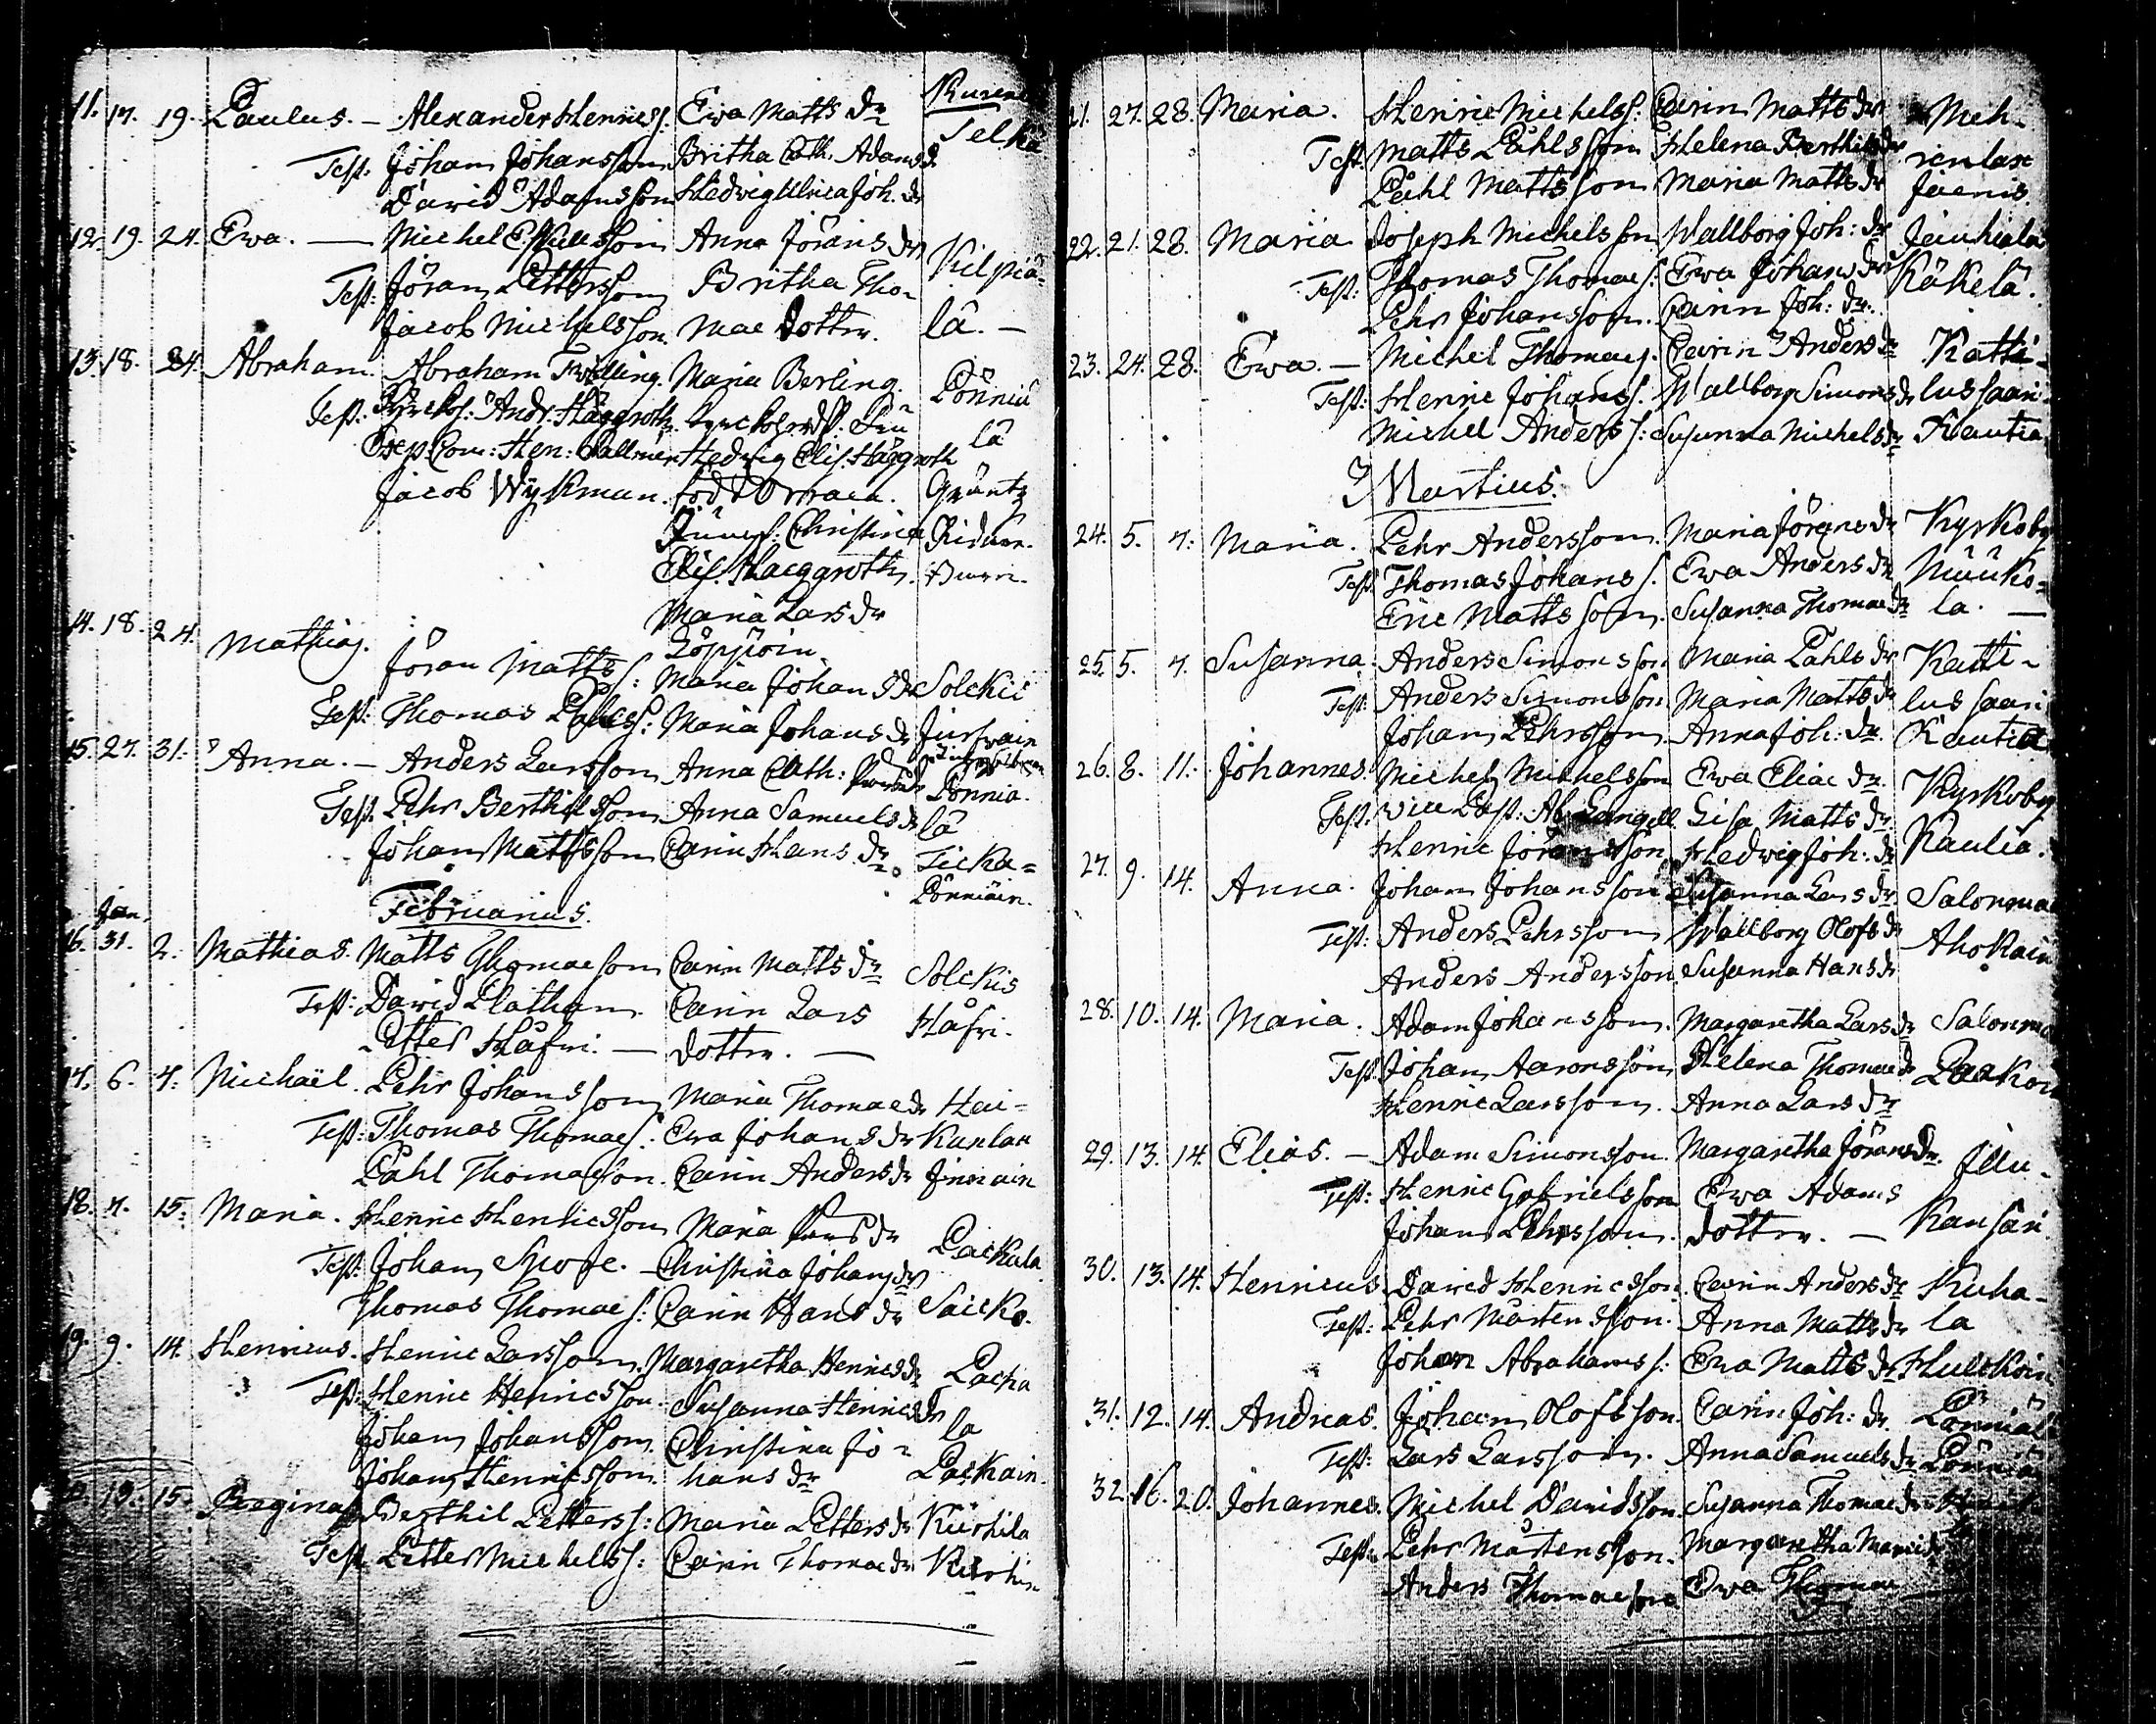 11. 17. 19. Paulus. – Alexander Henrics: Ewa Matts dr
Selkä
Test: Johan Johansson Britha Cath. Adams d.
David Adamsson Hedwig Ulrica Joh. dr
12. 19. 24. Ewa. — Michel Eskilsson Anna Jörans dr Kilpiä-
Test: Jöran Pettersson Britha Tho-
Jacob Michelsson mae dotter. lä. –
13. 18. 24. Abraham. Abraham Maria Berling. Pönniä
Test: Andr. Häggroth lä
Hen: Hedwig Elis. Häggroth
Jacob Wykman.
Christina
Elis. Haeggroth.
Maria Lars dr
14. 18. 24. Mathias. Jöran Matts s: Maria Johans dr Solckis
Test: Thomas Maria Johans dr
15. 27. 31. Anna. – Anders Larsson Anna Cath: Pönniä-
Test: Pehr Berthilsson Anna Samuels dr lä
Johan Mattsson Carin Hans dr. Ticka-
Pönniäin.
Februarius.
Jan.
16. 31. 2. Mathias. Matts Thomaeson Carin Matts dr Solckis
Test: David Plathan Carin Lars Håfri.
Petter Håfri. — dotter. —
17. 6. 7. Michaël. Pehr Johansson Maria Thomae dr Hei-
Test: Thomas Thomae s: Ewa Johans dr
Påhl Thomaeson. Carin Anders dr
18. 7. 15. Maria. Henric Henricsson Maria dr Packula
Test: Johan Spofe. Christina Johans dr
Thomas Thomae s: Carin Hans dr
19. 9. 14. Henricus. Henric Larsson. Margaretha Henrics dr Packa
Test: Henric Henricsson. Susanna Henrics dr la
Johan Johansson Christina Jo-
Johan Henricsson hans dr Packain.
13. 15. Regina Berthil Petters s: Maria Petters dr Kiiskila
Test. Petter Michels s: Carin Thomae dr
21. 27. 28. Maria. Henric Michels s: Carin Matts dr Meh-
Test: Matts Påhlsson Helena Berthils dr
Påhl Mattsson Maria Matts dr
22. 21. 28. Maria Joseph Michelsson Wallborg Joh: dr Jauhiala
Test: Thomas Thomae s: Ewa Johans dr Käkelä.
Pehr Johansson. Carin Joh: dr.
23. 24. 28. Ewa. — Michel Thomae s. Carin Anders dr Katti-
Test: Henric Johans s. Wallborg Simons dr lussaari.
Michel Anders s: Susanna Michels dr Kautia
Martius.
24. 5. 7. Maria. Pehr Andersson. Maria Jörans dr Kyrkoby
Test: Thomas Johans s. Ewa Anders dr
Eric Mattsson. Susanna Thomae dr la. —
25. 5. 7. Susanna. Anders Simonsson Maria Påhls dr Katti-
Test: Anders Simonsson Maria Matts dr lussaari
Johan Pehrsson. Anna Joh: dr. Kautia
26. 8. 11. Johannes. Michel Michelsson Ewa Eliae dr. Kyrkoby
Test. Vice Past: Ab. Langell Lisa Matts dr
Henric Jöransson Hedwig Joh: dr Kaulia.
27. 9. 14. Anna. Johan Johansson Susanna Lars dr Salonma
Test: Anders Pehrsson Wallborg Olofs dr Ahokain
Anders Andersson. Susanna Hans dr
28. 10. 14. Maria. Adam Johansson. Margaretha Lars dr Salonma
Test: Johan Aaronsson Helena Thomae dr
Henric Larsson. Anna Lars dr
29. 13. 14. Elias. — Adam Simonsson. Margaretha Jörans dr.
Test: Henric Gabrielsson Ewa Adams
Johan Pehrsson. dotter. —
30. 13. 14. Henricus. David Henricsson. Carin Anders dr Kuha-
Test: Pehr Mårtensson. Anna Matts dr la
Johan Abrahams s: Ewa Matts dr
31. 12. 14. Andreas. Johan Olofsson. Carin Joh: dr.
Test: Lars Larsson. Anna Samuels dr
32. 16. 20. Johannes. Michel Davidsson. Susanna Thomae dr
Test: Pehr Mårtensson. Margaretha
Anders Thomaeson Ewa Thomae